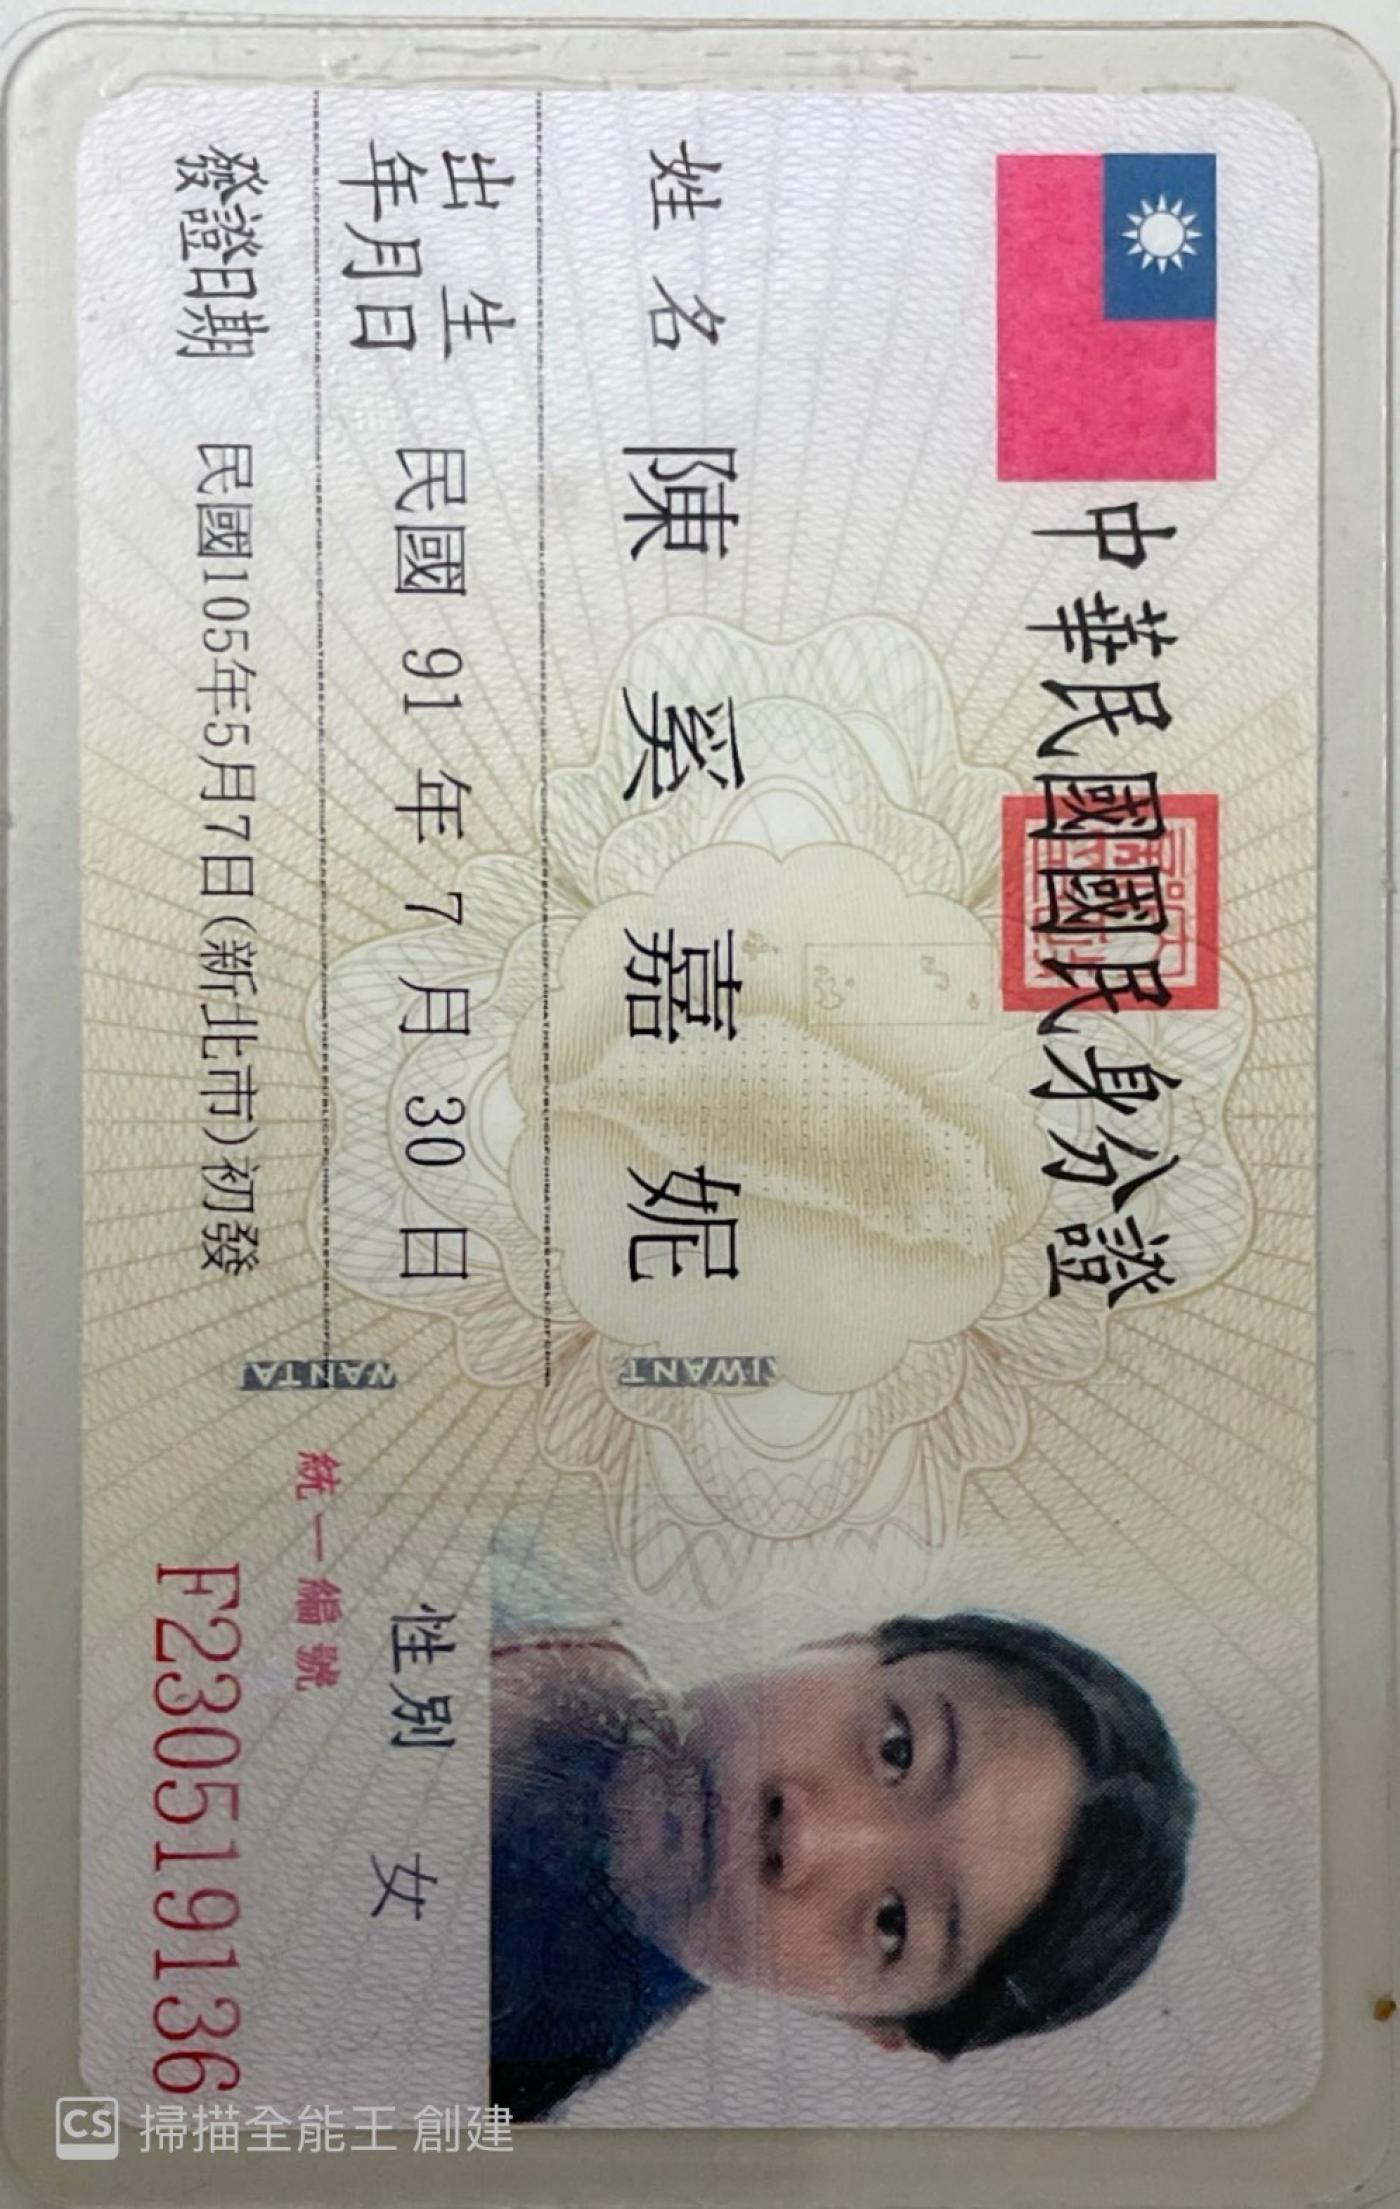 中華民國國民身分證
姓名 陳奚嘉妮
出生年月日 民國 91 年 7 月 30 日
性別 女
發證日期 民國105年5月7日(新北市)初發
統一編號
F230519136
WANTA
IWANT
CS 掃描全能王 創建